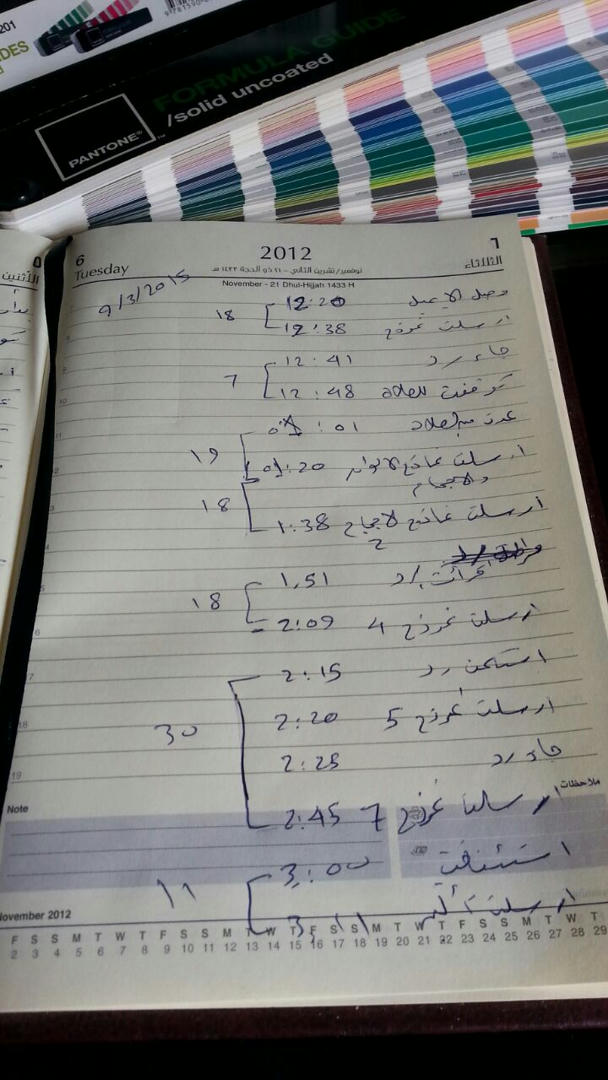 201
DES
PANTONE®
FORMULA GUIDE
/solid uncoated
6
2012
٦
Tuesday
نوفمبر/تشرين الثاني - ٢١ ذو الحجة ١٤٣٣ هـ
الثلاثاء
November - 21 Dhul-Hijjah 1433 H
الأثنين
9/3/2015
وصل الايميل 12:20
18
ارسلت نموذج 12:38
جاء رد 12:41
7
توقفت 12:48
عدت 01:01
19
ارسلت نماذج الالوان 01:20
والاحجام
18
ارسلت نماذج الاحجام 1:38
2
قرأت رد 1,51
18
ارسلت نموذج 4 2:09
رد 2:15
ارسلت نموذج 5 2:20
30
جاء رد 2:25
ملاحظات
Note
ارسلنا نموذج 7 2:45
استأنفت 3:00
11
ارسلت 3,11
November 2012
F S S M T W T F S S M T W T F S S M T W T F S S M T W T
2 3 4 5 6 7 8 9 10 11 12 13 14 15 16 17 18 19 20 21 22 23 24 25 26 27 28 29